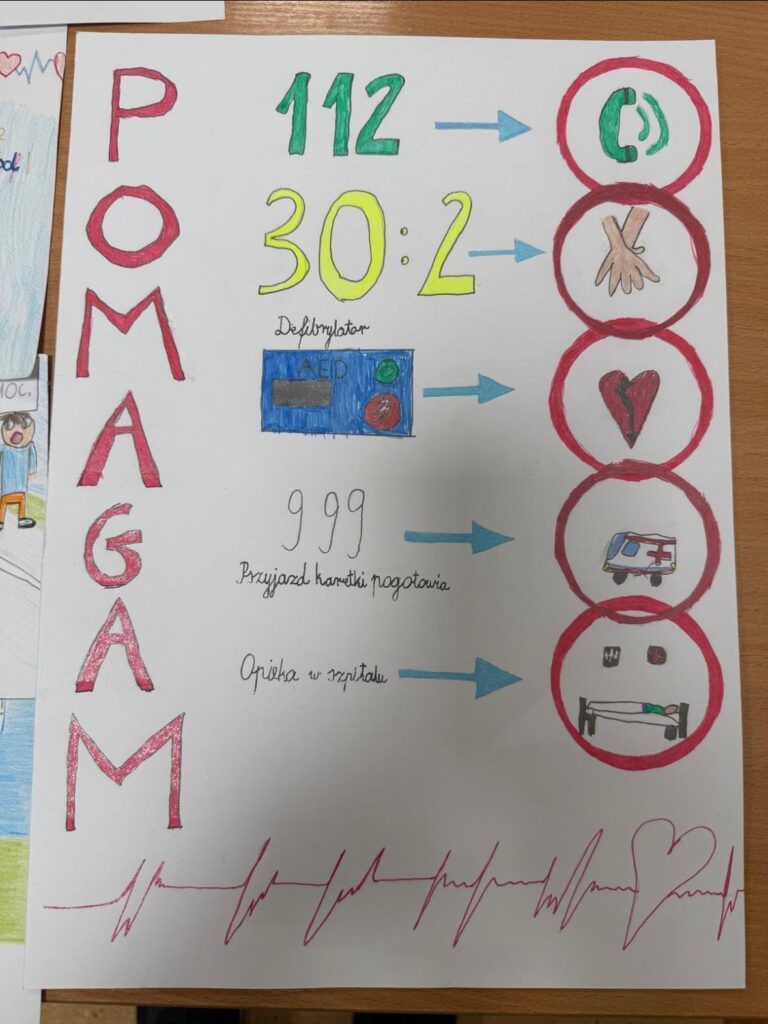 POMAGAM
112
30:2
Defibrylator
AED
999
Przyjazd karetki pogotowia
Opieka w szpitalu
MOC.